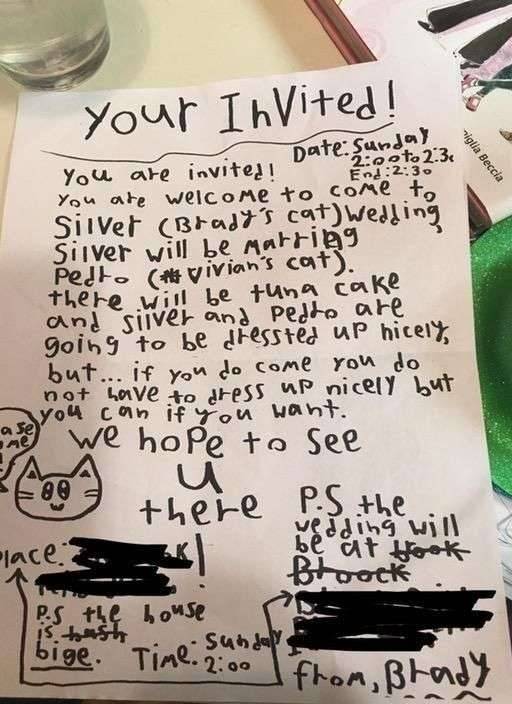 Your Invited!
Date: Sunday
2:00 to 2:30
End: 2:30
You are invited!
You are welcome to come to
Silver (Brady's cat) Wedding,
Silver will be marring
Pedro (Vivian's cat).
there will be tuna cake
and silver and Pedro are
going to be dressted up nicely,
but... if you do come you do
not have to dress up nicely but
you can if you want.
We hope to see
U
there
Place:
P.S the house
is
bige.
Time: Sunday
2:00
P.S the
wedding will
be at
Bloock
from, Brady
niglia Beccia